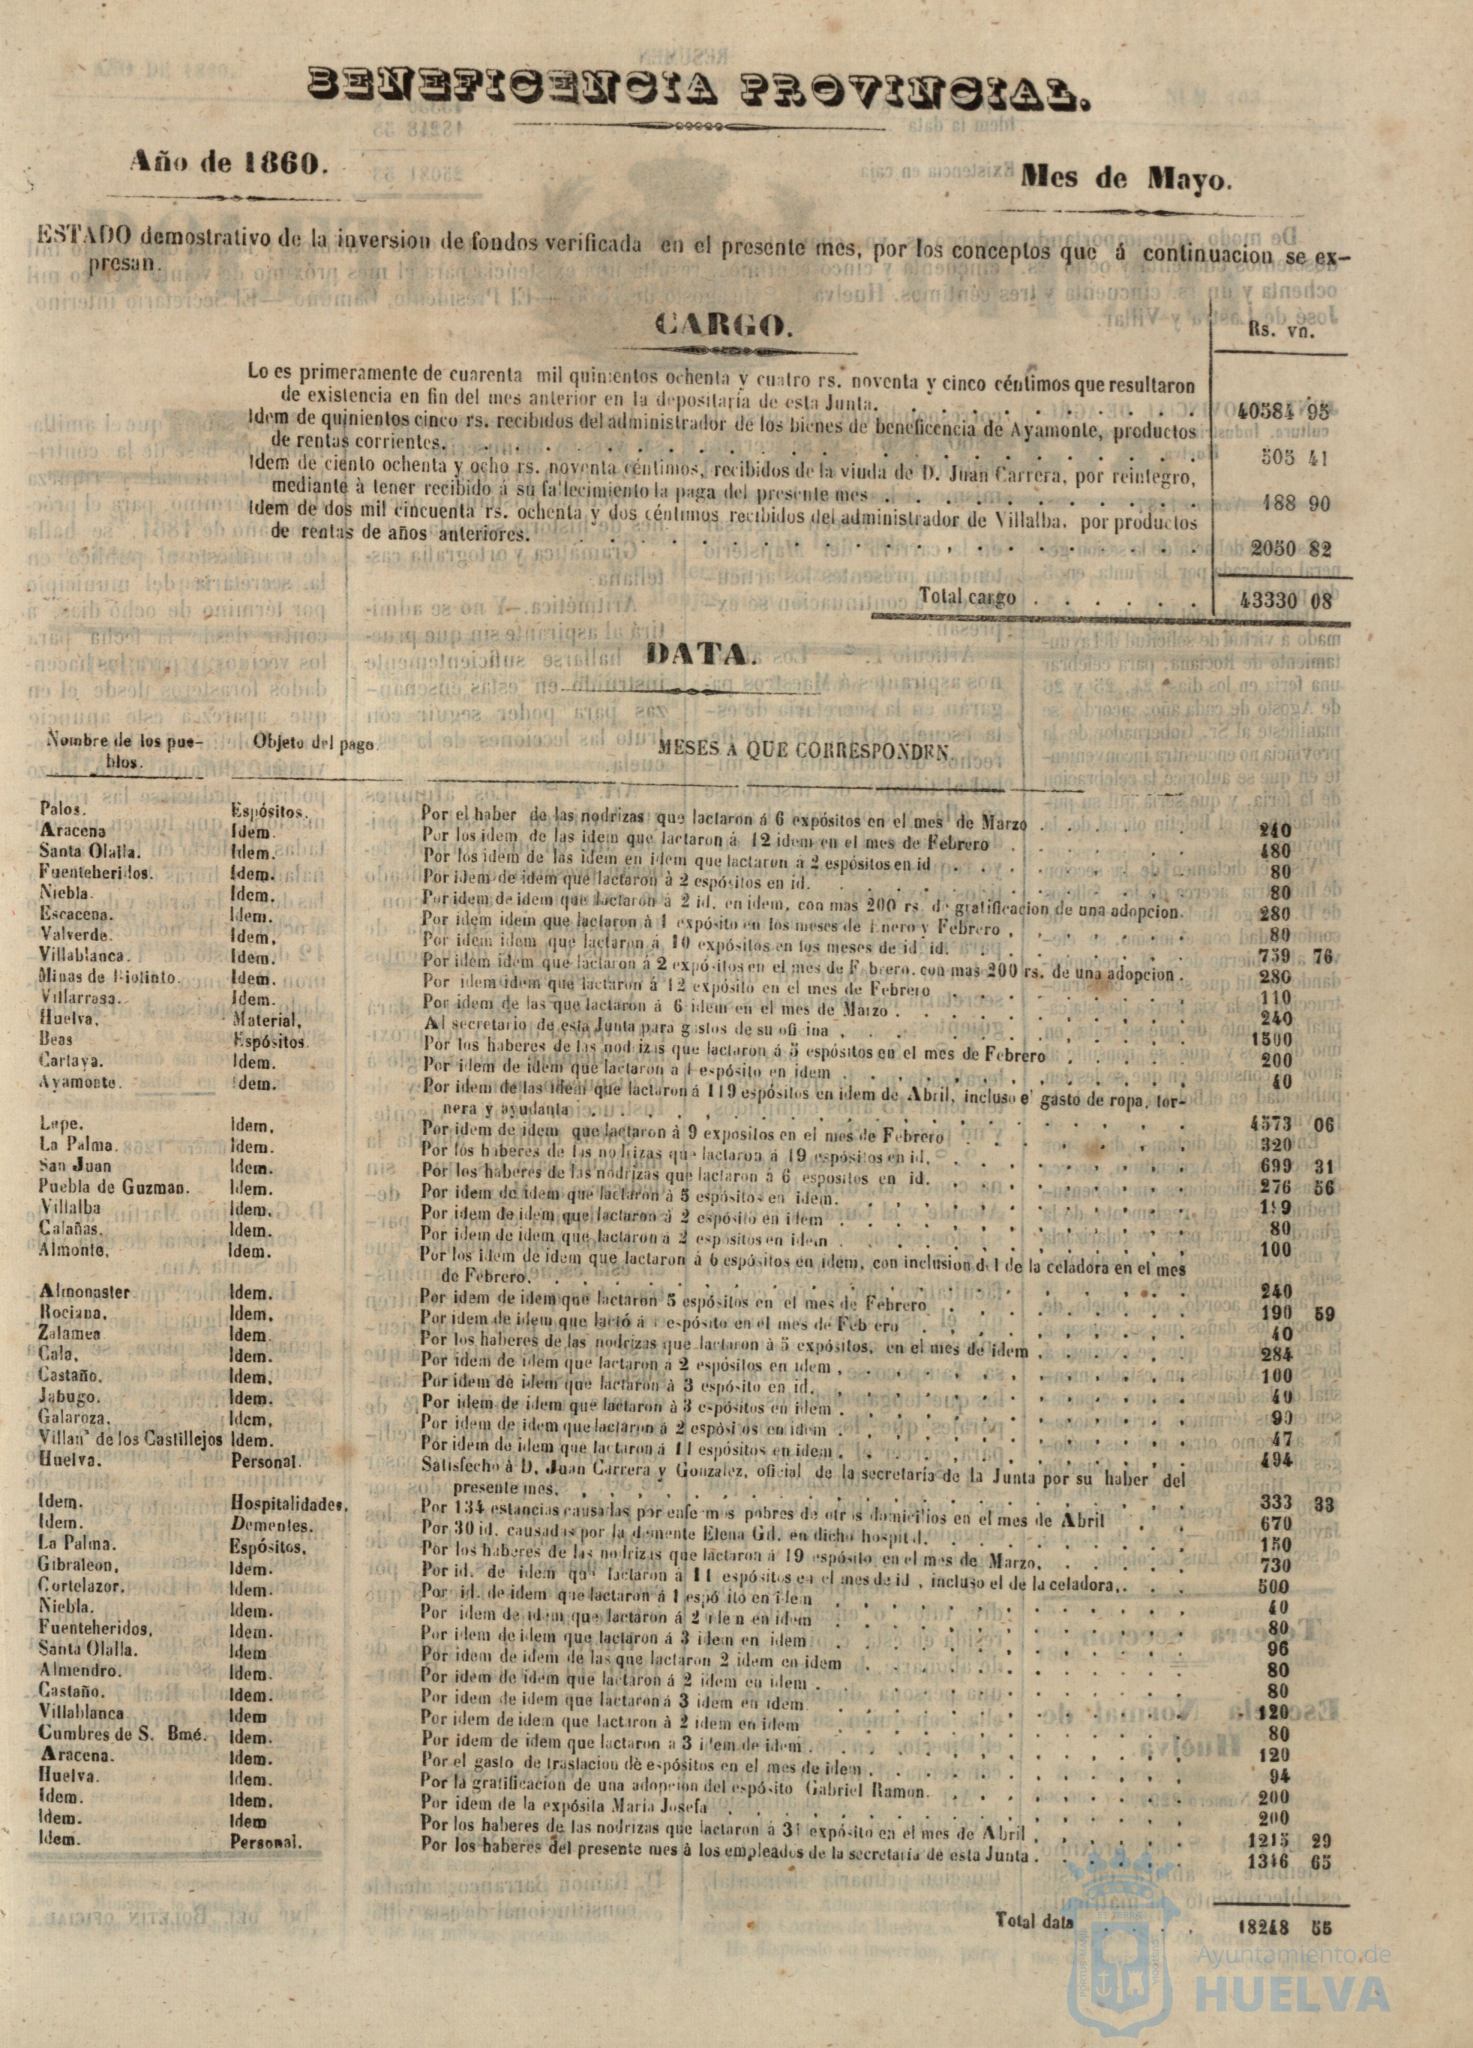 BENEFICENCIA PROVINCIAL.
Año de 1860.
Mes de Mayo.
ESTADO demostrativo de la inversion de fondos verificada en el presente mes, por los conceptos que á continuacion se ex-
presan.
CARGO.
Rs. vn.
Lo es primeramente de cuarenta mil quinientos ochenta y cuatro rs. noventa y cinco céntimos que resultaron
de existencia en fin del mes anterior en la depositaría de esta Junta. 40584 95
Idem de quinientos cinco rs. recibidos del administrador de los bienes de beneficencia de Ayamonte, productos
de rentas corrientes. 505 41
Idem de ciento ochenta y ocho rs. noventa céntimos, recibidos de la viuda de D. Juan Carrera, por reintegro,
mediante à tener recibido á su fallecimiento la paga del presente mes 188 90
Idem de dos mil cincuenta rs. ochenta y dos céntimos recibidos del administrador de Villalba, por productos
de rentas de años anteriores. 2050 82
Total cargo 43330 08
DATA.
Nombre de los pue-
blos. Objeto del pago. MESES A QUE CORRESPONDEN.
Palos. Espósitos. Por el haber de las nodrizas que lactaron á 6 expósitos en el mes de Marzo 240
Aracena Idem. Por los idem de las idem que lactaron á 12 idem en el mes de Febrero 480
Santa Olalla. Idem. Por los idem de las idem en idem que lactaron á 2 espósitos en id 80
Fuenteheridos. Idem. Por idem de idem que lactaron à 2 espósitos en id. 80
Niebla. Idem. Por idem de idem que lactaron á 2 id. en idem, con mas 200 rs. de gratificacion de una adopcion. 280
Escacena. Idem. Por idem idem que lactaron à 1 expósito en los meses de Enero y Febrero 80
Valverde. Idem. Por idem idem que lactaron á 10 expósitos en los meses de id id. 759 76
Villablanca. Idem. Por idem idem que lactaron á 2 expósitos en el mes de Febrero. con mas 200 rs. de una adopcion. 280
Minas de Riotinto. Idem. Por idem idem que lactaron à 12 expósito en el mes de Febrero 110
Villarrasa. Idem. Por idem de las que lactaron á 6 idem en el mes de Marzo 240
Huelva. Material. Al secretario de esta Junta para gastos de su oficina 1500
Beas Espósitos. Por los haberes de las nodrizas que lactaron á 5 espósitos en el mes de Febrero 200
Cartaya. Idem. Por idem de idem que lactaron a 1 espósito en idem 40
Ayamonte. Idem. Por idem de las idem que lactaron á 119 espósitos en idem de Abril, incluso el gasto de ropa, tor-
nera y ayudanta 4573 06
Lepe. Idem. Por idem de idem que lactaron à 9 expositos en el mes de Febrero 320
La Palma. Idem. Por los haberes de las nodrizas que lactaron á 19 espósitos en id. 699 31
San Juan Idem. Por los haberes de las nodrizas que lactaron á 6 espositos en id. 276 56
Puebla de Guzman. Idem. Por idem de idem que lactaron á 5 espósitos en idem.
Villalba Idem. Por idem de idem que lactaron á 2 espósito en idem 80
Calañas. Idem. Por idem de idem que lactaron á 2 espósitos en idem 100
Almonte. Idem. Por los idem de idem que lactaron á 6 espósitos en idem, con inclusion del de la celadora en el mes
de Febrero. 240
Almonaster Idem. Por idem de idem que lactaron 5 espósitos en el mes de Febrero 190 59
Rociana. Idem. Por idem de idem que lactó á espósito en el mes de Febrero 40
Zalamea Idem. Por los haberes de las nodrizas que lactaron à 5 expósitos, en el mes de idem 284
Cala. Idem. Por idem de idem que lactaron à 2 espósitos en idem 100
Castaño. Idem. Por idem de idem que lactaron à 3 espósito en id. 40
Jabugo. Idem. Por idem de idem que lactaron à 3 espósitos en idem 90
Galaroza. Idem. Por idem de idem que lactaron à 2 espósitos en idem 47
Villanª de los Castillejos Idem. Por idem de idem que lactaron á 11 espósitos en idem 494
Huelva. Personal. Satisfecho à D. Juan Carrera y Gonzalez, oficial de la secretaría de la Junta por su haber del
presente mes. 333 33
Idem. Hospitalidades. Por 134 estancias causadas por enfermos pobres de otros domicilios en el mes de Abril 670
Idem. Dementes. Por 30 id. causadas por la demente Elena Gd. en dicho hospital. 150
La Palma. Espósitos. Por los haberes de las nodrizas que lactaron á 19 espósito en el mes de Marzo. 730
Gibraleon. Idem. Por id. de idem que lactaron á 11 espósitos en el mes de id, incluso el de la celadora. 500
Cortelazor. Idem. Por id. de idem que lactaron á 1 espósito en idem 40
Niebla. Idem. Por idem de idem que lactaron á 2 idem en idem 80
Fuenteheridos. Idem. Por idem de idem que lactaron á 3 idem en idem 96
Santa Olalla. Idem Por idem de idem de las que lactaron 2 idem en idem 80
Almendro. Idem. Por idem de idem que lactaron á 2 idem en idem 80
Castaño. Idem. Por idem de idem que lactaron á 3 idem en idem 120
Villablanca Idem Por idem de idem que lactaron à 2 idem en idem 80
Cumbres de S. Bmé. Idem. Por idem de idem que lactaron a 3 idem de idem 120
Aracena. Idem. Por el gasto de traslacion de espósitos en el mes de idem 94
Huelva. Idem. Por la gratificacion de una adopcion del espósito Gabriel Ramon. 200
Idem. Idem. Por idem de la expósita Maria Josefa 200
Idem. Idem Por los haberes de las nodrizas que lactaron á 31 expósito en el mes de Abril 1215 29
Idem. Personal. Por los haberes del presente mes à los empleados de la secretaría de esta Junta 1346 65
Total data 18248 55
Ayuntamiento de
HUELVA